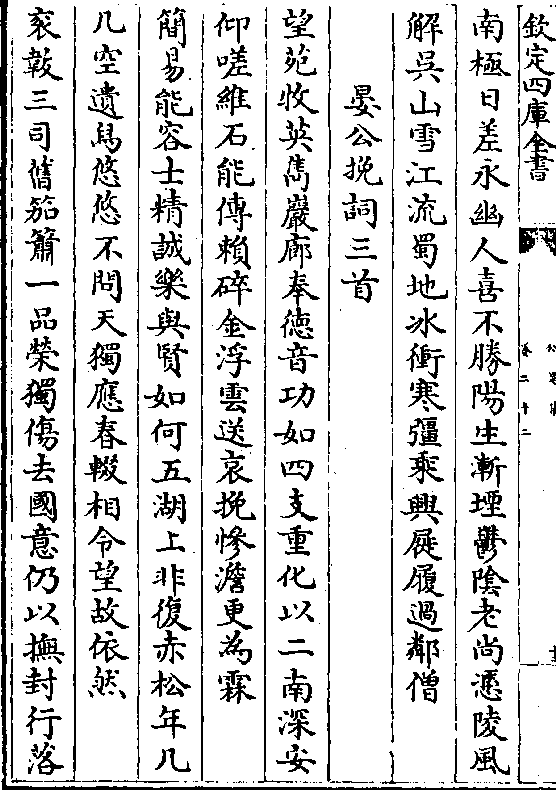 欽定四庫全書
南極日差永幽人喜不勝陽生漸堙鬱陰老尚慿陵風
解吳山雪江流蜀地冰衝寒彊乘興屐履過鄰僧
晏公挽詞三首
望苑收英雋巖廊奉德音功如四支重化以二南深安
仰嗟維石能傳賴碎金浮雲送哀挽慘澹更為霖
簡易能容士精誠樂與賢如何五湖上非復赤松年几
几空遺舄悠悠不問天獨應春輟相令望故依然
衮黻三司舊笳簫一品榮獨傷去國意仍以撫封行落